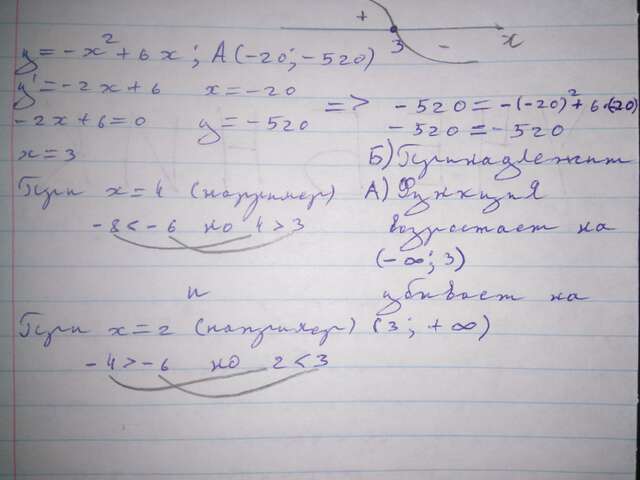 + 3 - x
y = -x² + 6x ; A(-20; -520)
y' = -2x + 6 x = -20 => -520 = -(-20)² + 6·(-20)
-2x + 6 = 0 y = -520 -520 = -520
x = 3 Б) Принадлежит
При x = 4 (например) А) Функция
-8 < -6 но 4 > 3 возростает на
(-∞; 3)
и убивает на
При x = 2 (например) (3; +∞)
-4 > -6 но 2 < 3